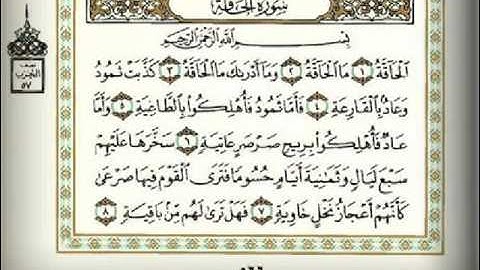 سُورَةُ الحَاقَّةِ
بِسْمِ اللَّهِ الرَّحْمَٰنِ الرَّحِيمِ
الْحَاقَّةُ ١ مَا الْحَاقَّةُ ٢ وَمَا أَدْرَىٰكَ مَا الْحَاقَّةُ ٣ كَذَّبَتْ ثَمُودُ
وَعَادٌ بِالْقَارِعَةِ ٤ فَأَمَّا ثَمُودُ فَأُهْلِكُوا بِالطَّاغِيَةِ ٥ وَأَمَّا
عَادٌ فَأُهْلِكُوا بِرِيحٍ صَرْصَرٍ عَاتِيَةٍ ٦ سَخَّرَهَا عَلَيْهِمْ
سَبْعَ لَيَالٍ وَثَمَٰنِيَةَ أَيَّامٍ حُسُومًا فَتَرَى الْقَوْمَ فِيهَا صَرْعَىٰ
كَأَنَّهُمْ أَعْجَازُ نَخْلٍ خَاوِيَةٍ ٧ فَهَلْ تَرَىٰ لَهُم مِّنۢ بَاقِيَةٍ ٨
نصف
الحزب
٥٧